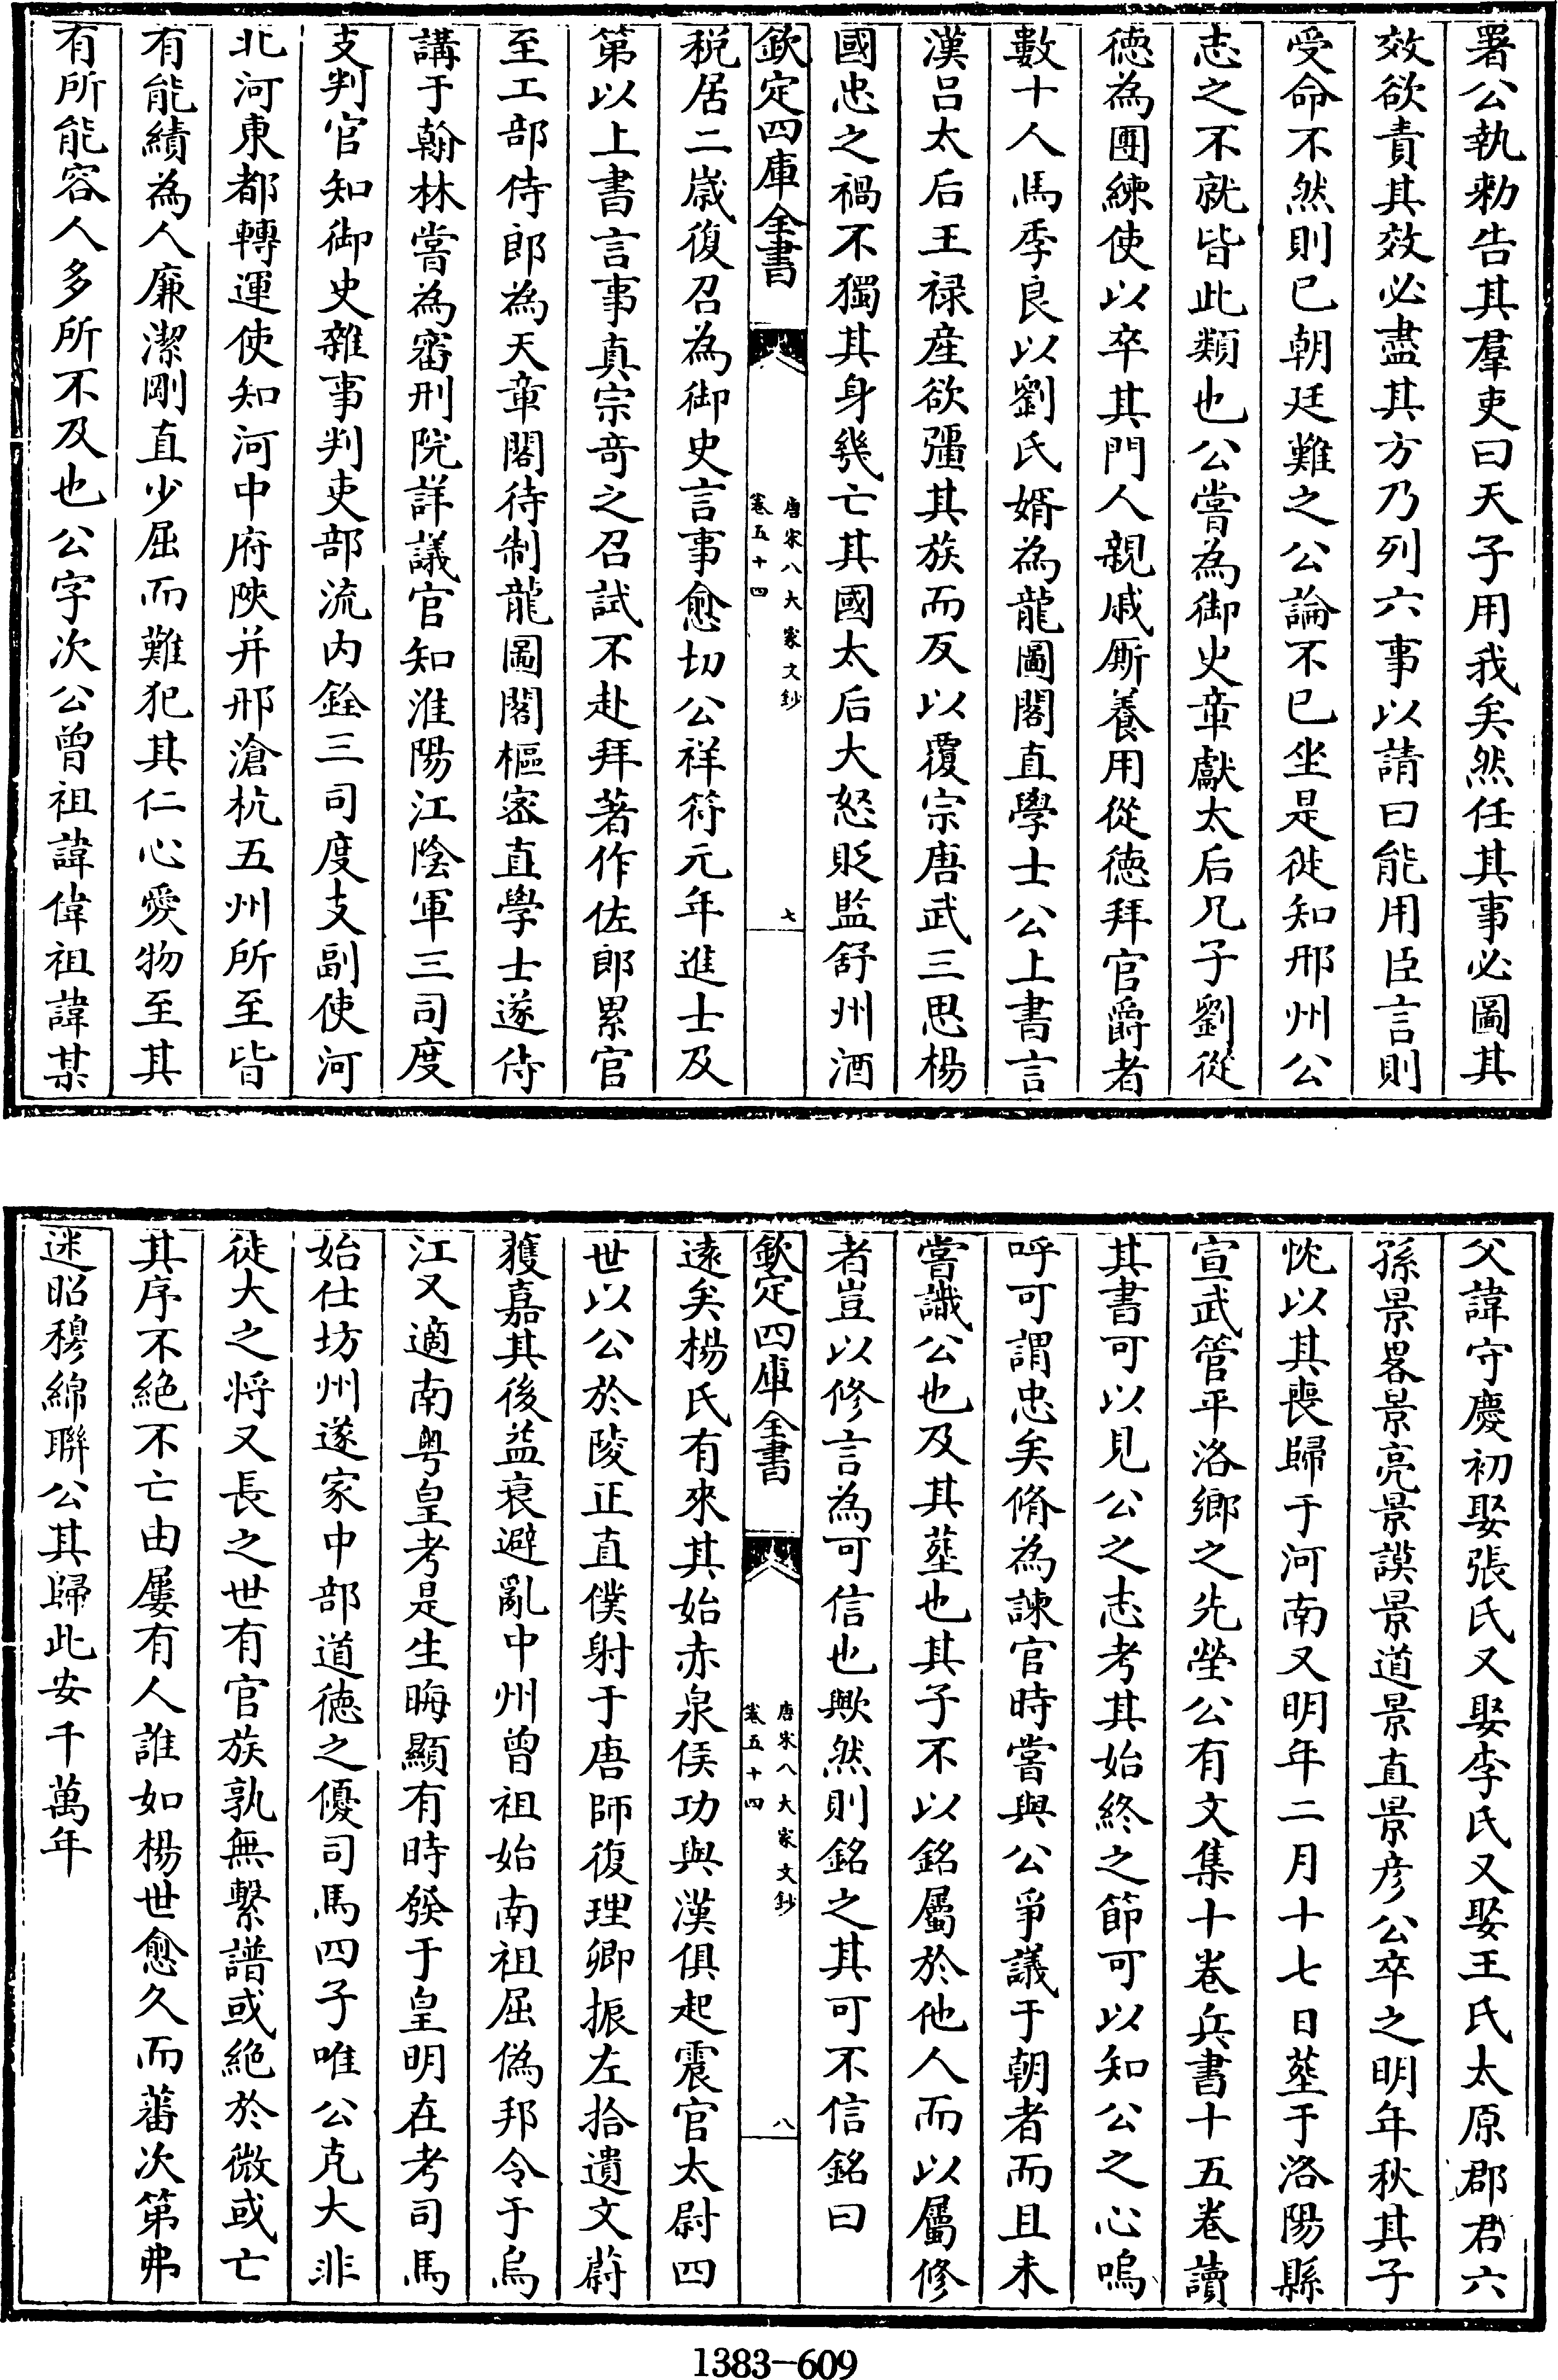 署公執勅告其羣吏曰天子用我矣然任其事必圖其
效欲責其效必盡其方乃列六事以請曰能用臣言則
受命不然則已朝廷難之公論不已坐是徙知邢州公
志之不就皆此類也公嘗為御史章獻太后兄子劉從
徳為團練使以卒其門人親戚厮養用從徳拜官爵者
數十人馬季良以劉氏婿為龍圖閣直學士公上書言
漢吕太后王禄産欲彊其族而反以覆宗唐武三思楊
國忠之禍不獨其身幾亡其國太后大怒貶監舒州酒
欽定四庫全書
唐宋八大家文鈔
卷五十四
七
税居二嵗復召為御史言事愈切公祥符元年進士及
第以上書言事真宗竒之召試不赴拜著作佐郎累官
至工部侍郎為天章閣待制龍圖閣樞宻直學士遂侍
講于翰林嘗為審刑院詳議官知淮陽江陰軍三司度
支判官知御史雜事判吏部流内銓三司度支副使河
北河東都轉運使知河中府陜并邢滄杭五州所至皆
有能績為人廉潔剛直少屈而難犯其仁心愛物至其
有所能容人多所不及也公字次公曽祖諱偉祖諱某
父諱守慶初娶張氏又娶李氏又娶王氏太原郡君六
孫景畧景亮景謨景道景直景彦公卒之明年秋其子
忱以其喪歸于河南又明年二月十七日塟于洛陽縣
宣武管平洛鄉之先塋公有文集十卷兵書十五卷讀
其書可以見公之志考其始終之節可以知公之心嗚
呼可謂忠矣脩為諫官時嘗與公爭議于朝者而且未
嘗識公也及其塟也其子不以銘屬於他人而以屬修
者豈以修言為可信也歟然則銘之其可不信銘曰
欽定四庫全書
唐宋八大家文鈔
卷五十四
八
逺矣楊氏有來其始赤泉侯功與漢俱起震官太尉四
世以公於陵正直僕射于唐師復理卿振左拾遺文蔚
獲嘉其後益衰避亂中州曽祖始南祖屈偽邦令于烏
江又適南粤皇考是生晦顯有時發于皇明在考司馬
始仕坊州遂家中部道徳之優司馬四子唯公克大非
徒大之将又長之世有官族孰無繫譜或絶於微或亡
其序不絶不亡由屢有人誰如楊世愈久而蕃次第弗
迷昭穆綿聯公其歸此安千萬年
1383-609